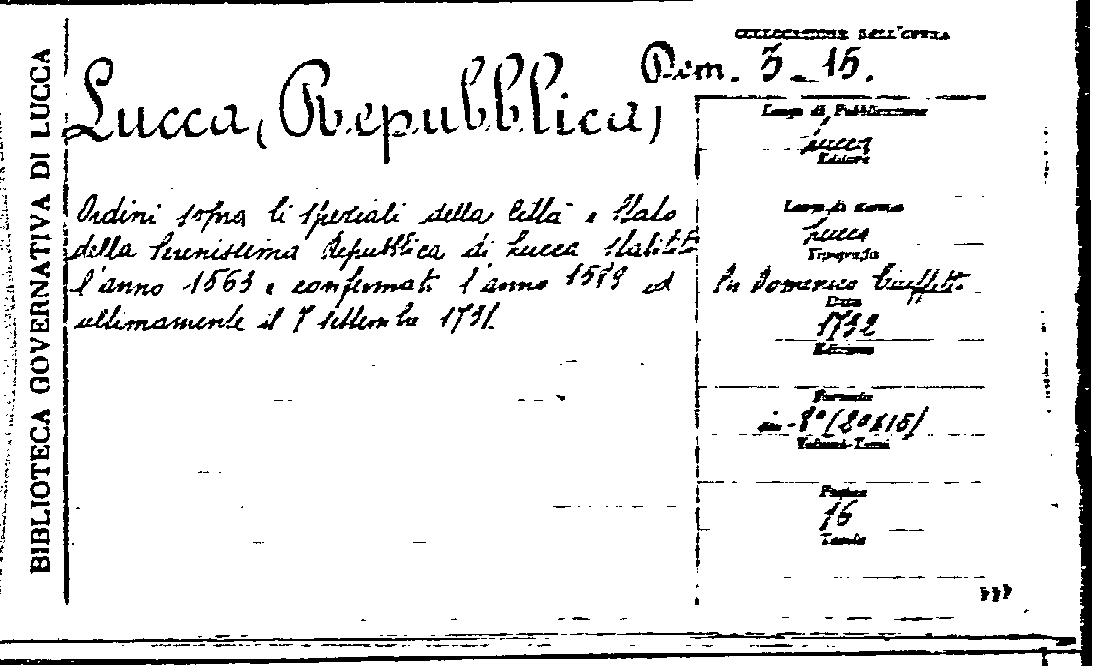 BIBLIOTECA GOVERNATIVA DI LUCCA
COLLOCAZIONE DELL'OPERA
3-15.
Lucca, (Repubblica)
Ordini sopra li speziali della Città e Stato
della Serenissima Repubblica di Lucca
l'anno 1563 e confermati l'anno ed
ultimamente il 7 settembre 1731.
Luogo di Pubblicazione
Lucca
Editore
Luogo di stampa
Lucca
Tipografia
Per Domenico Ciuffetti
Data
1732
Edizione
Formato
in-8° (20x15)
Volumi-Tomi
Pagine
16
Tavole